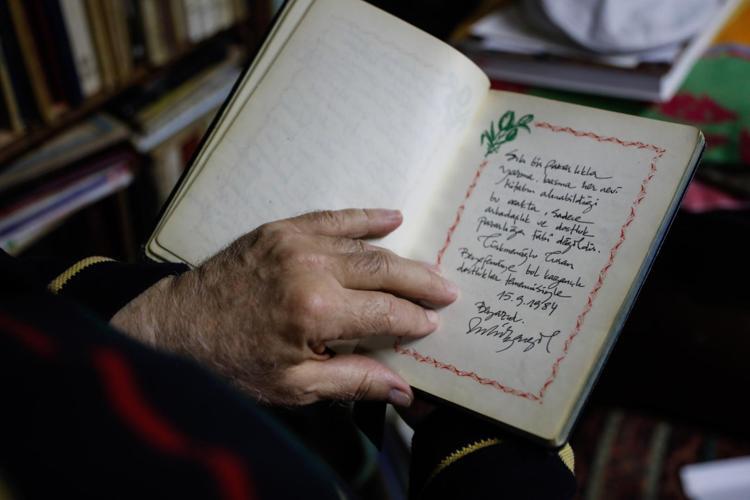 Sıkı bir pazarlıkla
yazma, basma her nevi
kitabın alınabildiği
bu , sadece
arkadaşlık ve dostluk
pazarlığa tabi değildir.
Türkmenoğlu Turan
Beyefendiye bol kazançlı
dostluklar temennisiyle
15.9.1984
Beyazıd.